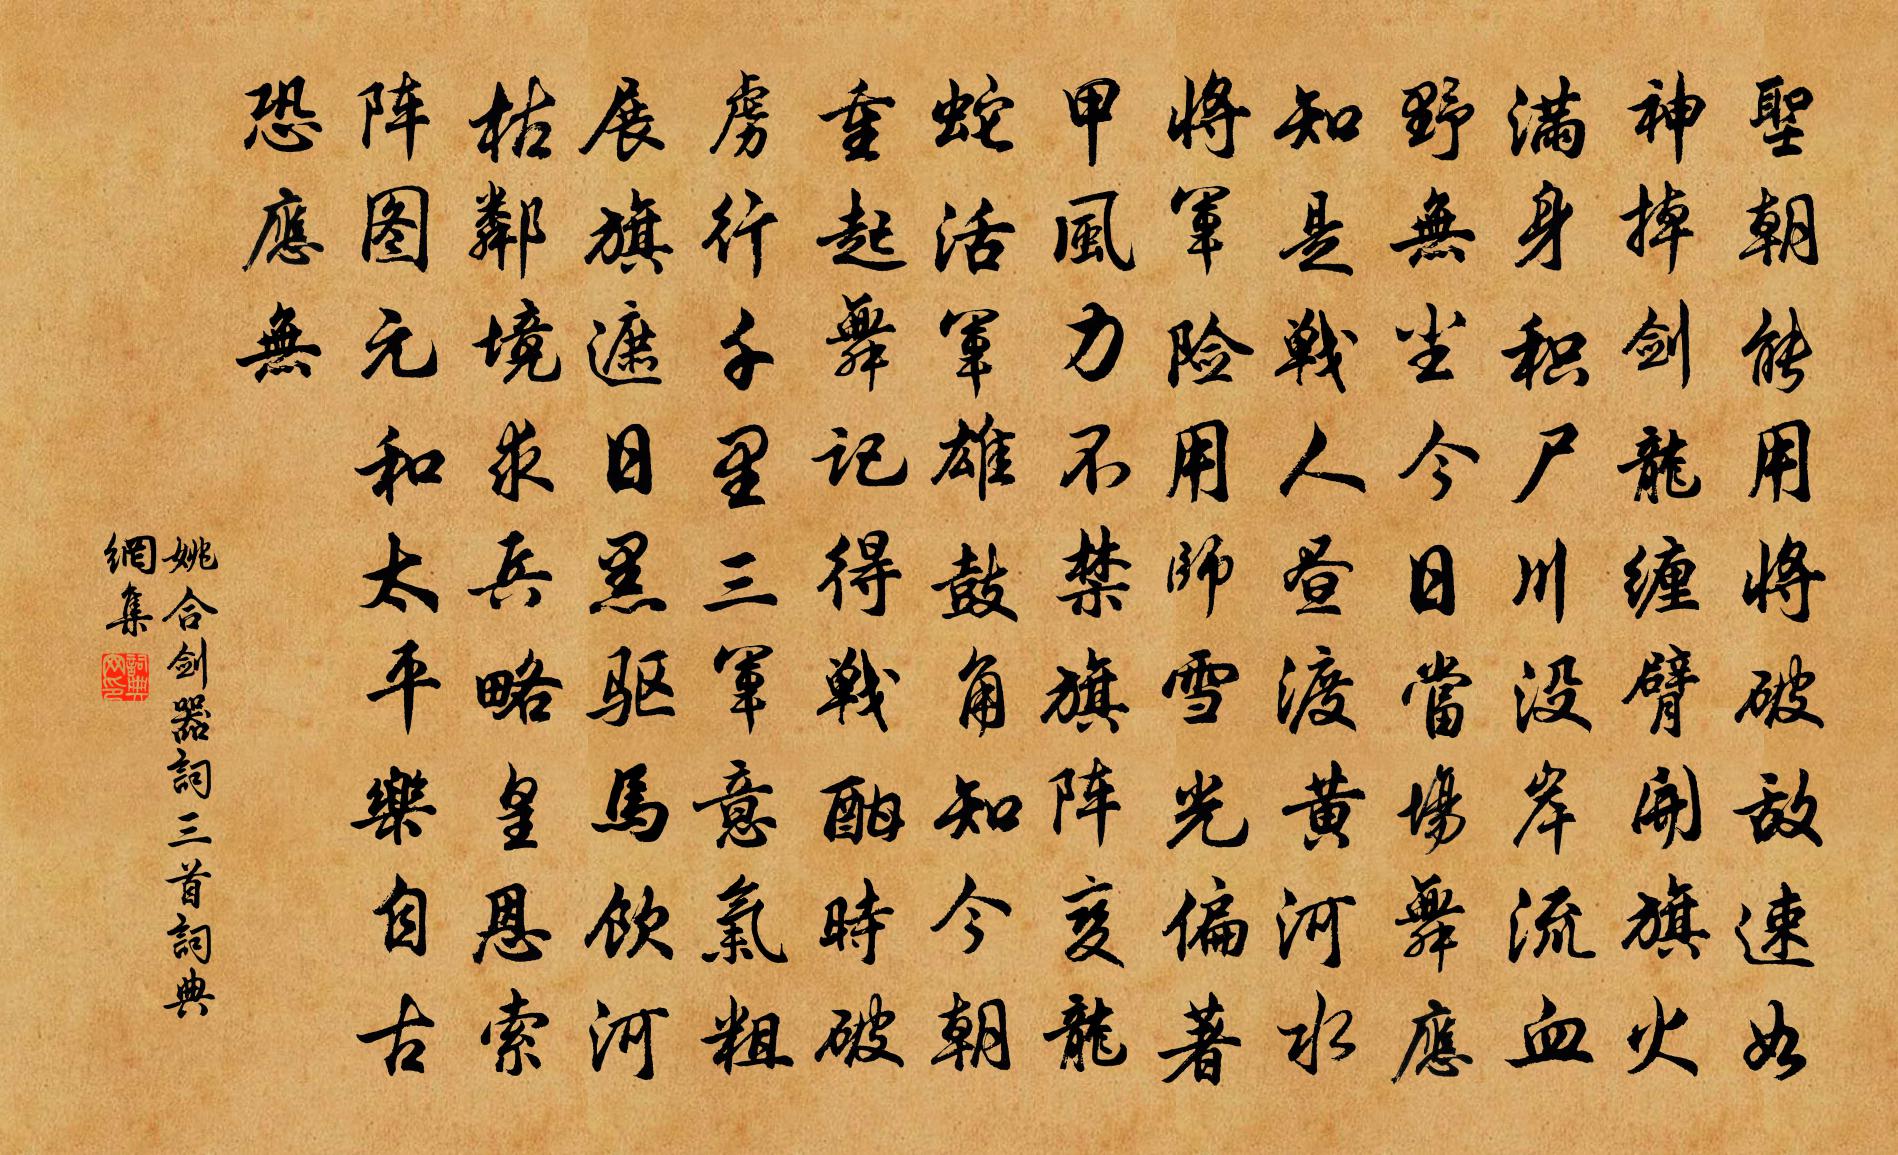 聖朝能用将破敌速如
神掉剑龍缠臂開旗火
满身积尸川没岸流血
野無尘今日當場舞應
知是戦人昼渡黄河水
将軍险用師雪光偏著
甲風力不禁旗阵变龍
蛇活軍雄鼓角知今朝
重起舞记得戦酣時破
虏行千里三軍意氣粗
展旗遮日黑驱馬飲河
枯鄰境求兵略皇恩索
阵图元和太平樂自古
恐應無
姚合剑器詞三首詞典
網集
詞典